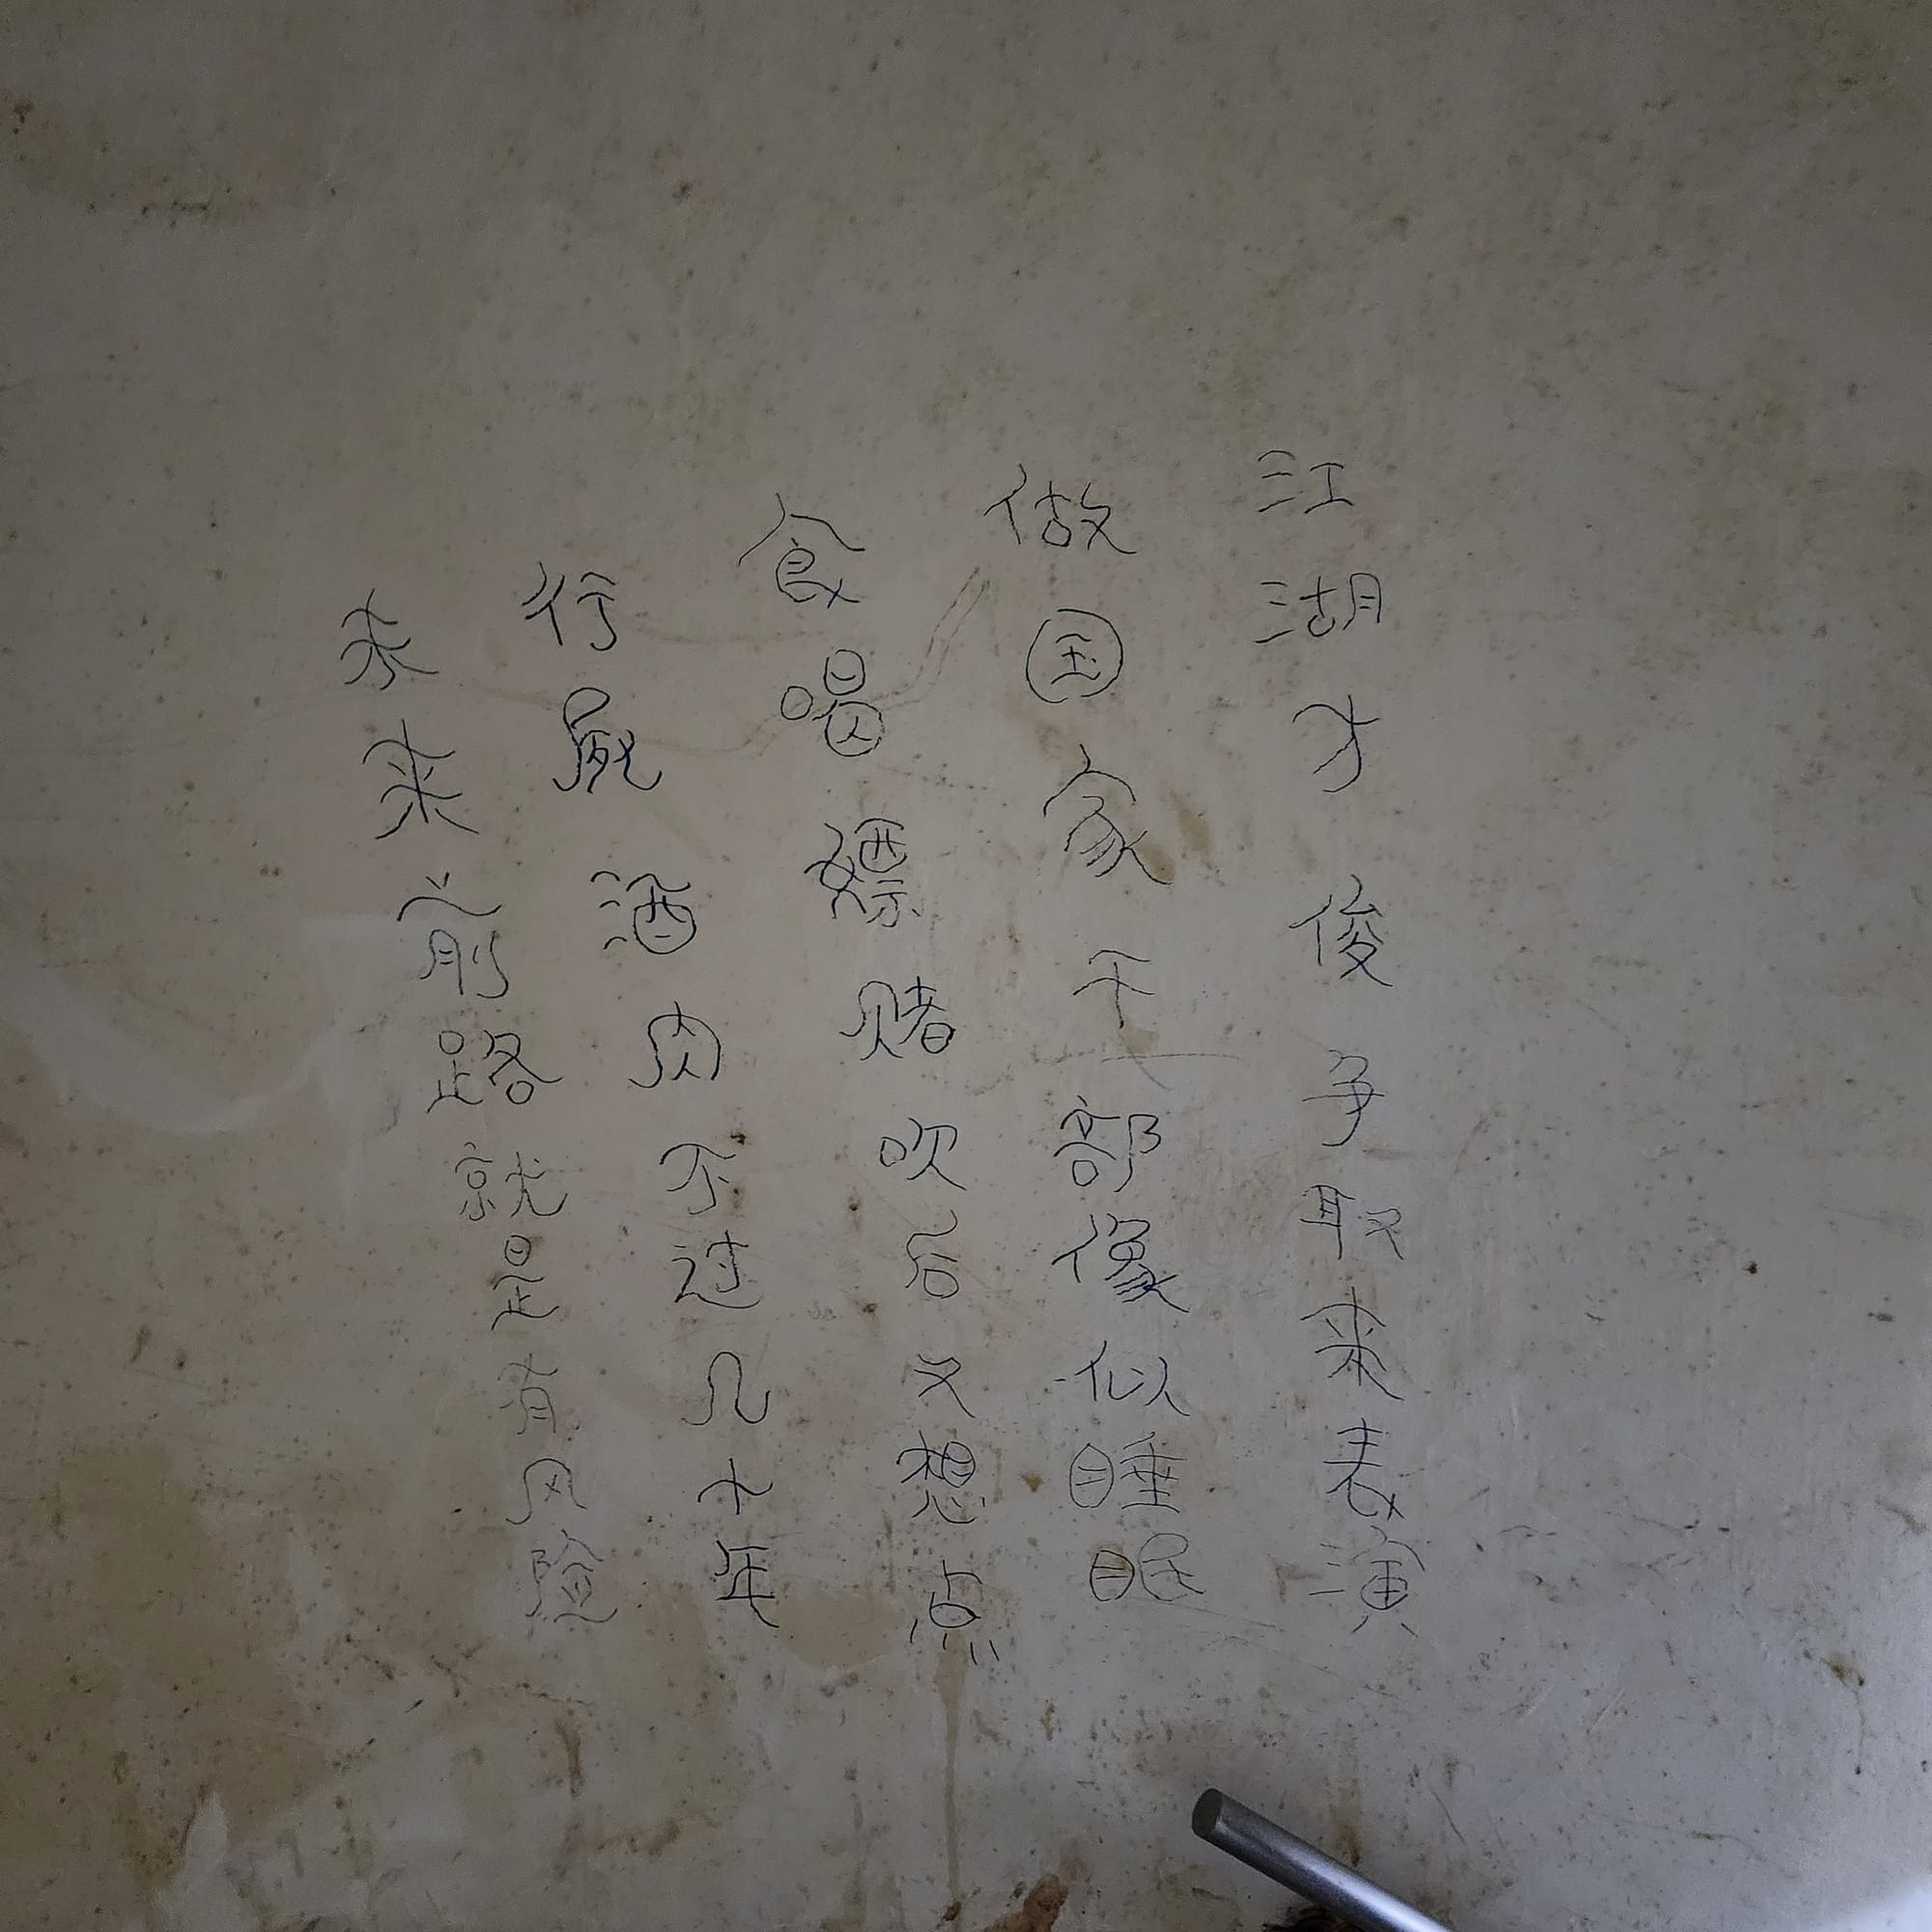 江湖才俊争取来表演
做国家干部像似睡眠
食喝嫖赌吹后又想点
行尸酒肉不过几十年
未来前路就是有风险